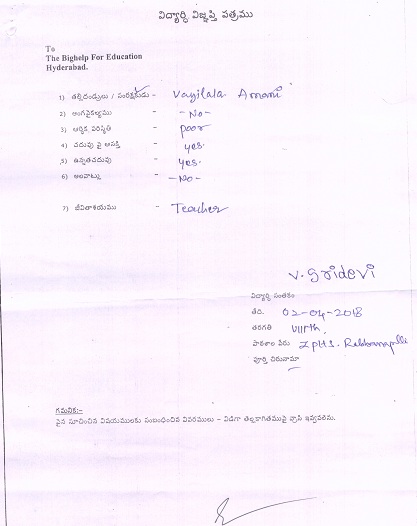 విద్యార్థి విజ్ఞప్తి పత్రము
To
The Bighelp For Education
Hyderabad.
1) తల్లిదండ్రులు / సంరక్షకుడు - Vayilala Amani
2) అంగవైకల్యము - -No-
3) ఆర్థిక పరిస్థితి - poor
4) చదువు పై ఆసక్తి - yes.
5) ఉన్నతచదువు - yes.
6) అలవాట్లు - -No-
7) జీవితాశయము - Teacher
V. Sridevi
విద్యార్థి సంతకం
తేది. 02-04-2018
తరగతి VIIth,
పాఠశాల పేరు ZPHS.
పూర్తి చిరునామా
గమనిక:-
పైన సూచించిన విషయములకు సంబంధించిన వివరములు - విడిగా తెల్లకాగితముపై వ్రాసి ఇవ్వవలెను.